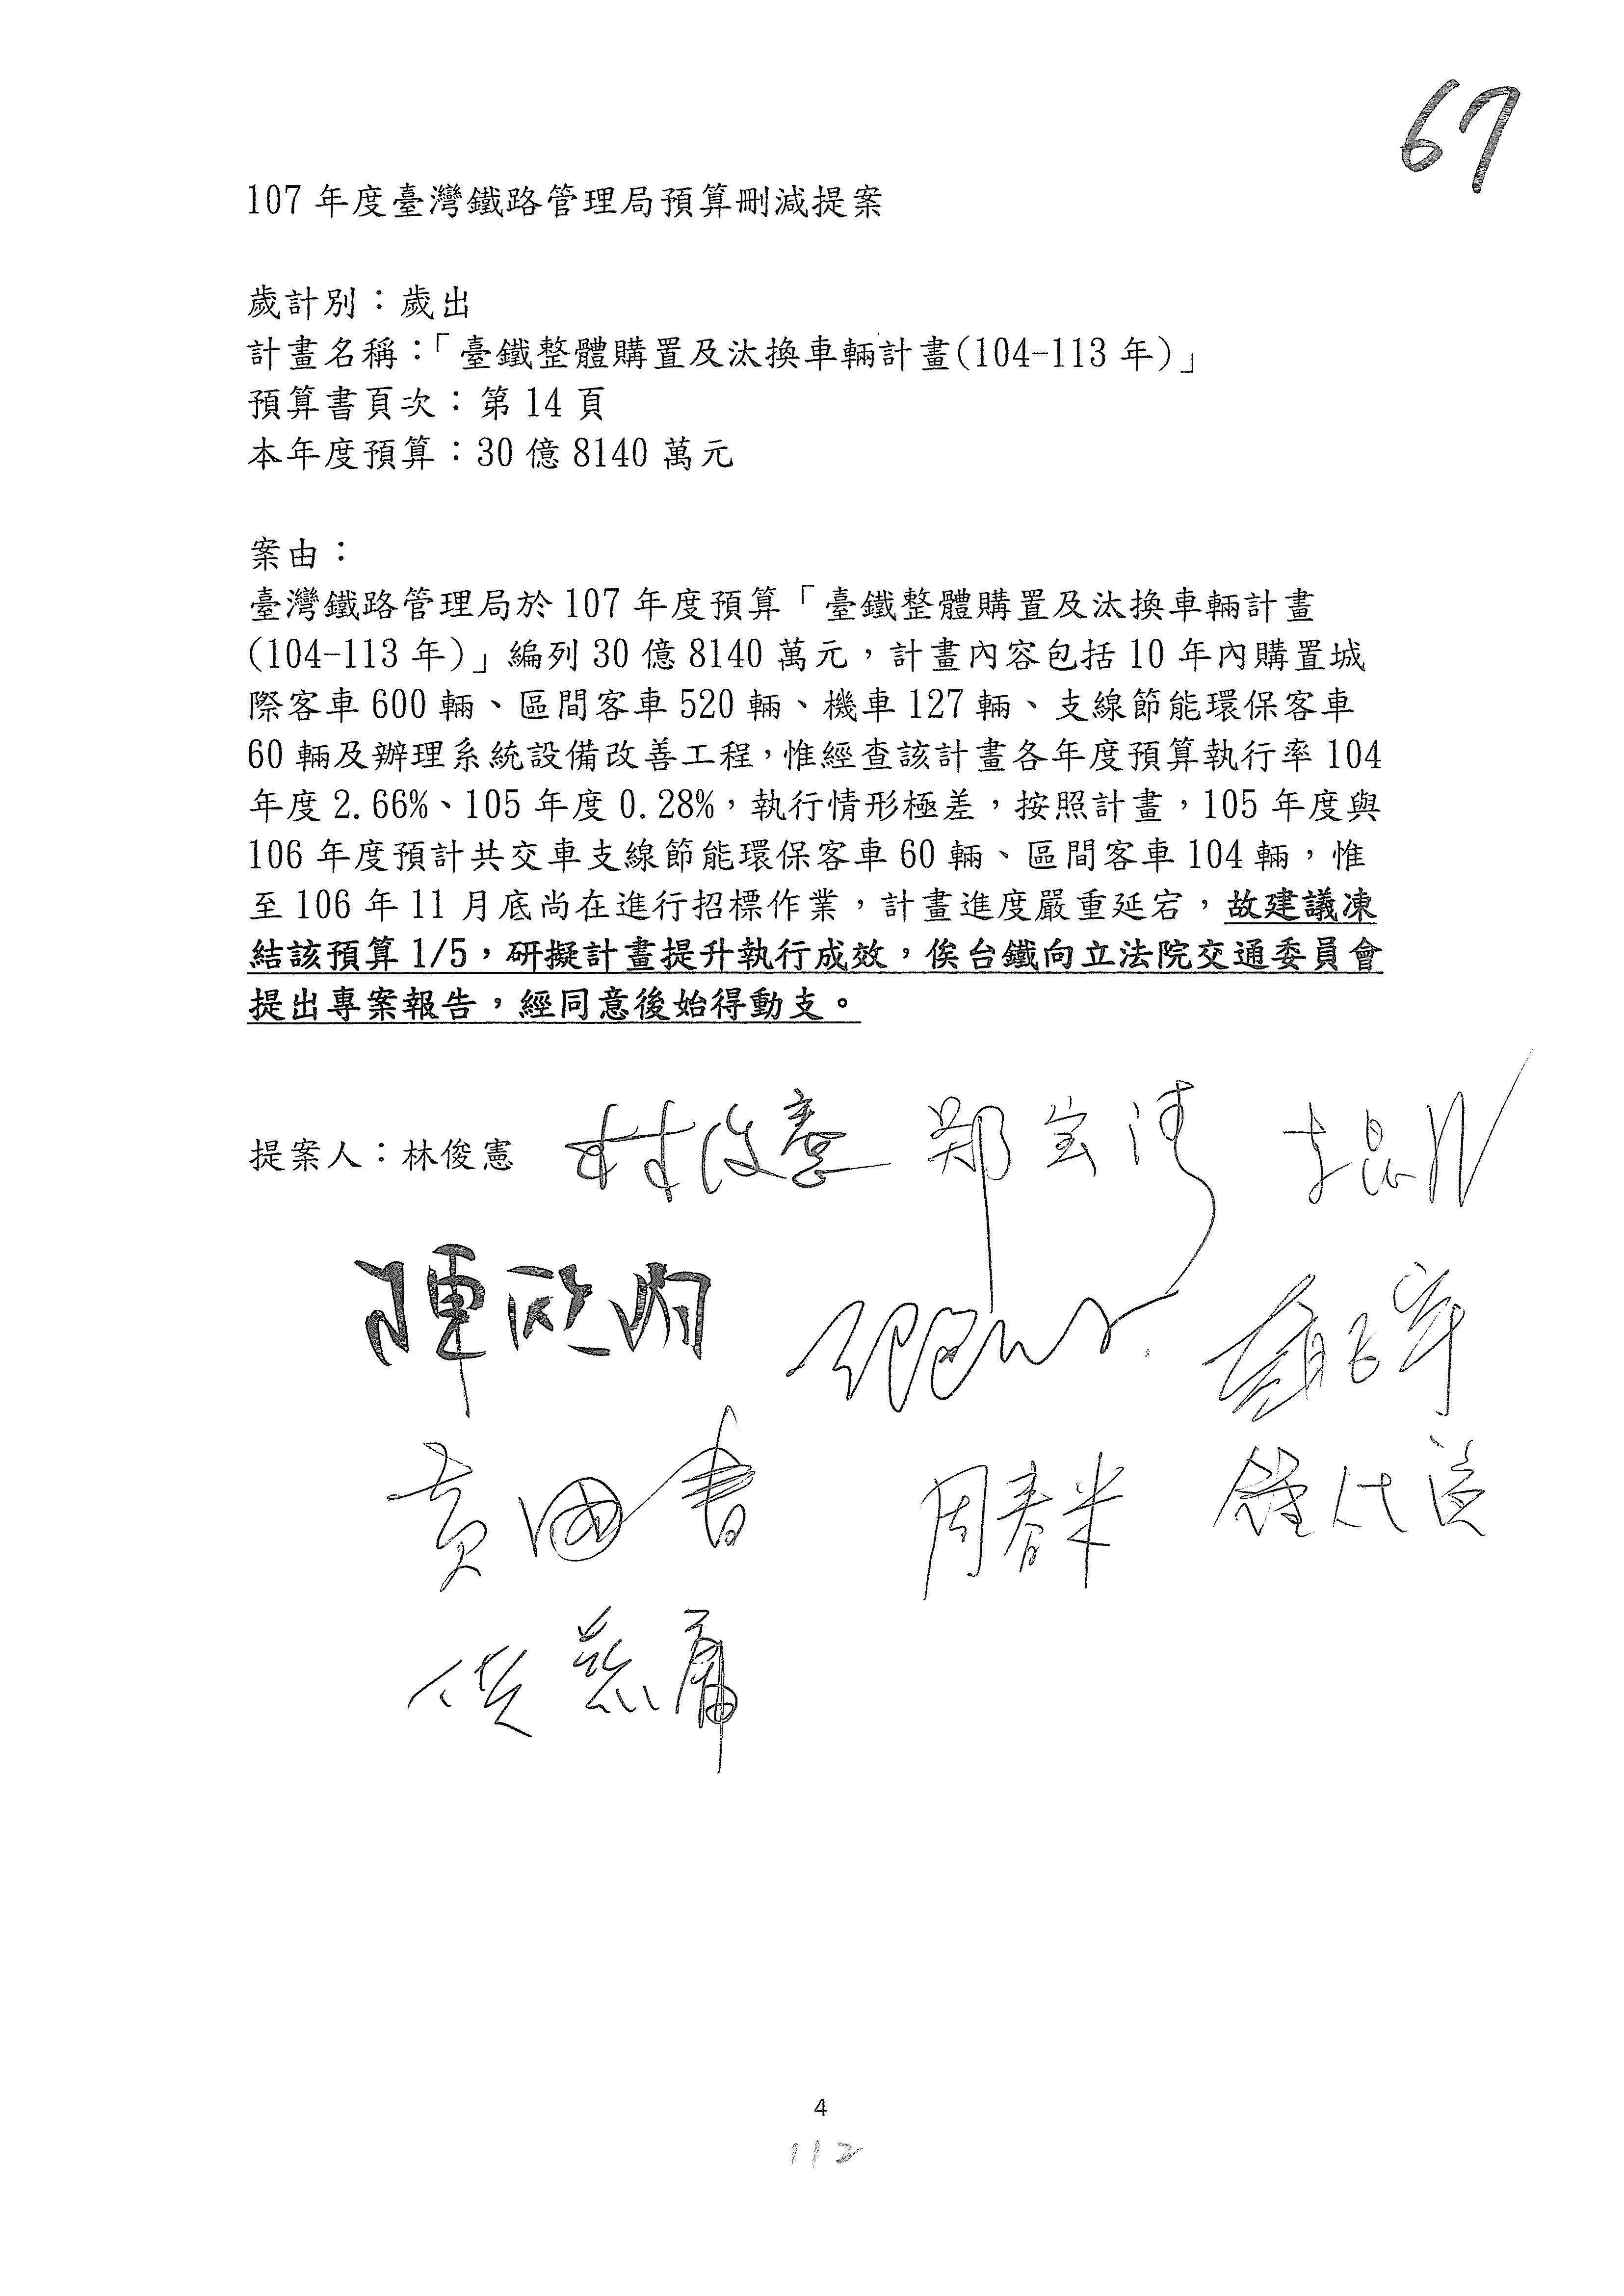 67
107 年度臺灣鐵路管理局預算刪減提案
歲計別：歲出
計畫名稱：「臺鐵整體購置及汰換車輛計畫(104-113 年)」
預算書頁次：第 14 頁
本年度預算：30 億 8140 萬元
案由：
臺灣鐵路管理局於 107 年度預算「臺鐵整體購置及汰換車輛計畫
(104-113 年)」編列 30 億 8140 萬元，計畫內容包括 10 年內購置城
際客車 600 輛、區間客車 520 輛、機車 127 輛、支線節能環保客車
60 輛及辦理系統設備改善工程，惟經查該計畫各年度預算執行率 104
年度 2.66%、105 年度 0.28%，執行情形極差，按照計畫，105 年度與
106 年度預計共交車支線節能環保客車 60 輛、區間客車 104 輛，惟
至 106 年 11 月底尚在進行招標作業，計畫進度嚴重延宕，故建議凍
結該預算 1/5，研擬計畫提升執行成效，俟台鐵向立法院交通委員會
提出專案報告，經同意後始得動支。
提案人：林俊憲 林俊憲 鄭宝清 李昆澤
陳歐珀
黃國書 周春米 鍾佳濱
4
112